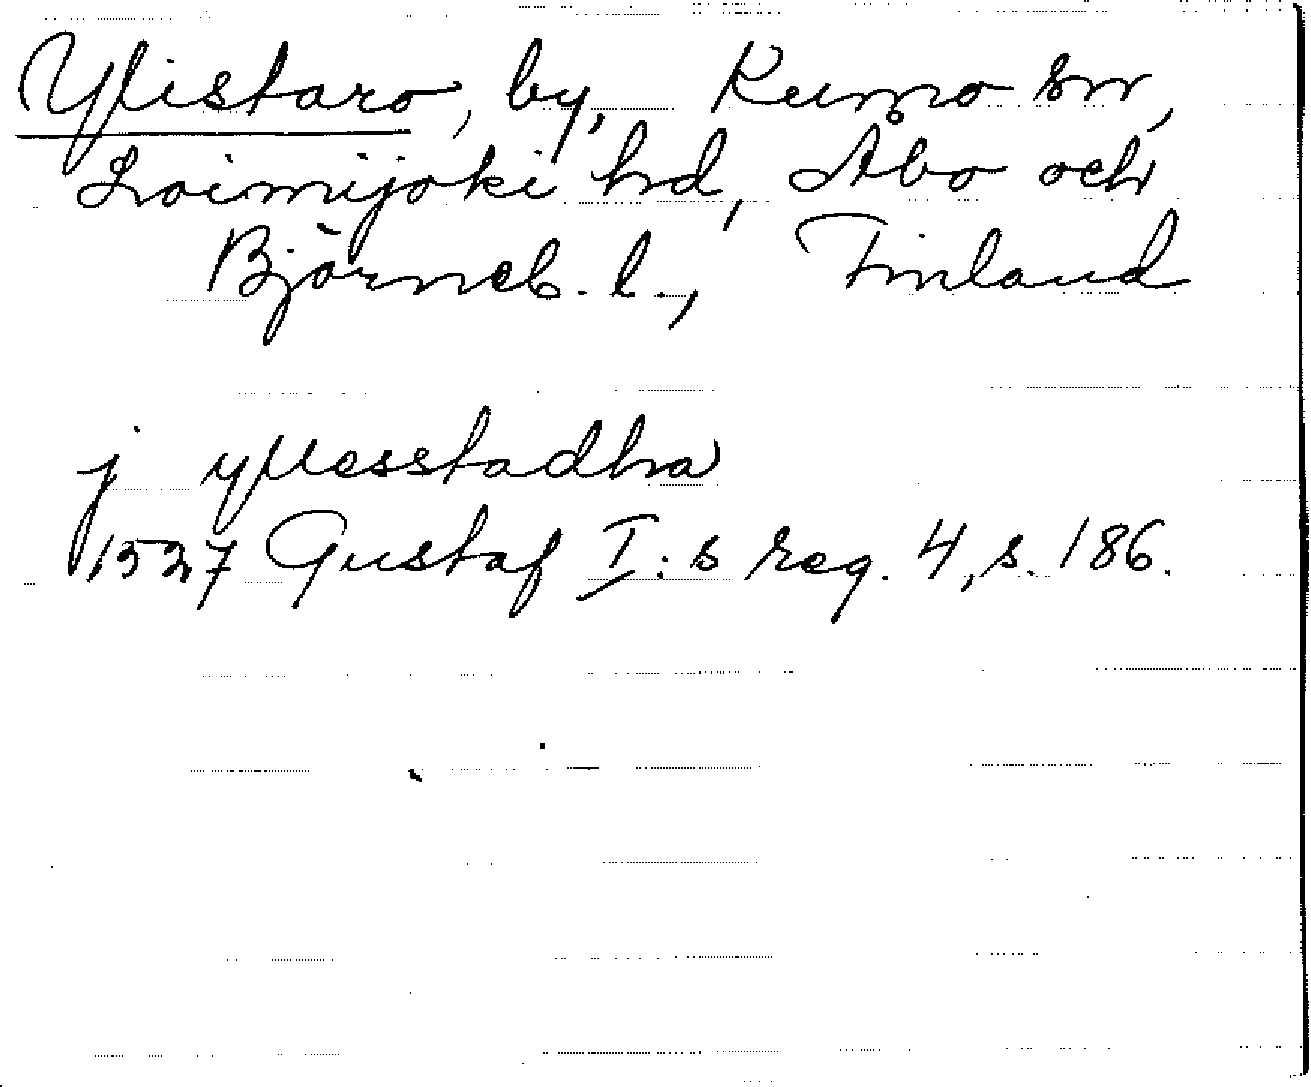 Ylistaro, by, Kumo sn,
Loimijoki hd, Åbo och
Björneb. l., Finland
j yllesstadha
1527 Gustaf I:s reg. 4, s. 186.